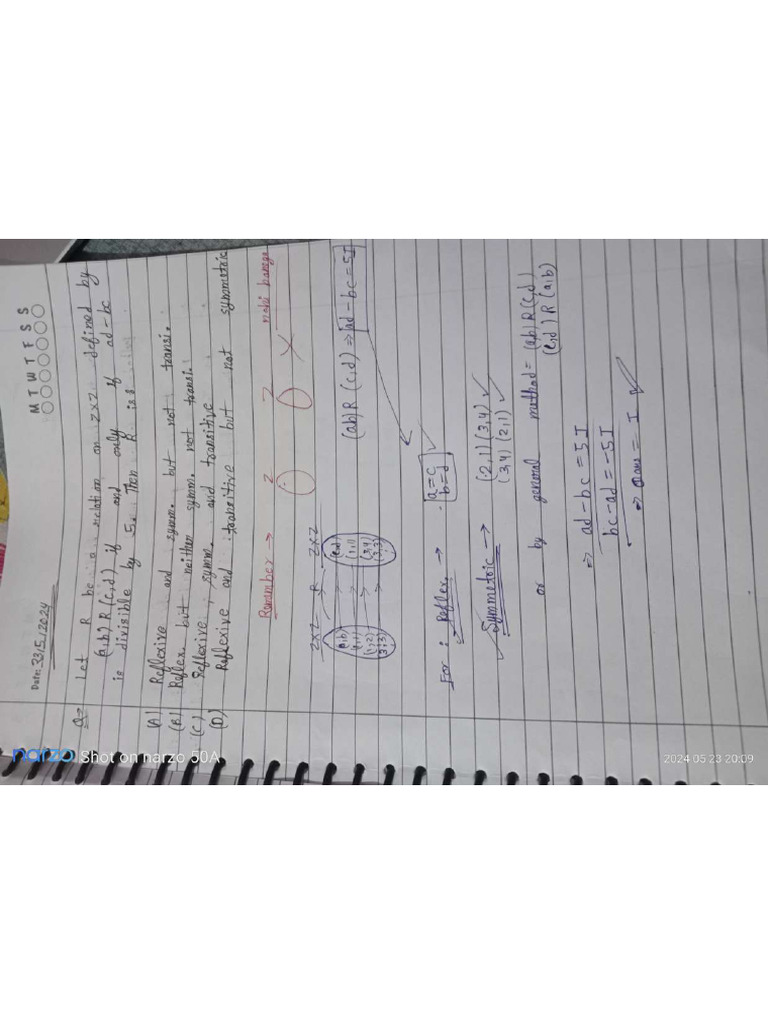 M T W T F S S
Date: 23/5/2024
Q→ Let R be a relation on Z×Z defined by
(a,b) R (c,d) if and only if ad-bc
is divisible by 5. Then R is:
(A) Reflexive and symm. but not transi.
(B) Reflex. but neither symm. not transi.
(C) Reflexive, symm. and transitive
(D) Reflexive and transitive but not symmetric
Remember → Z Z nahi banega
Z×Z R Z×Z
(a,b) (c,d)
(1,1) (1,1)
(1,2) (3,4)
(3,3)
(a,b) R (c,d) ⇒ ad-bc = 5I
For : Reflex. → a=c
b=d
Symmetric → (2,1) (3,4) ✓
(3,4) (2,1) ✓
or by general method = (a,b) R (c,d)
(c,d) R (a,b)
⇒ ad-bc = 5I
bc-ad = -5I
⇒ = I ✓
narzo Shot on narzo 50A
2024.05.23 20:09